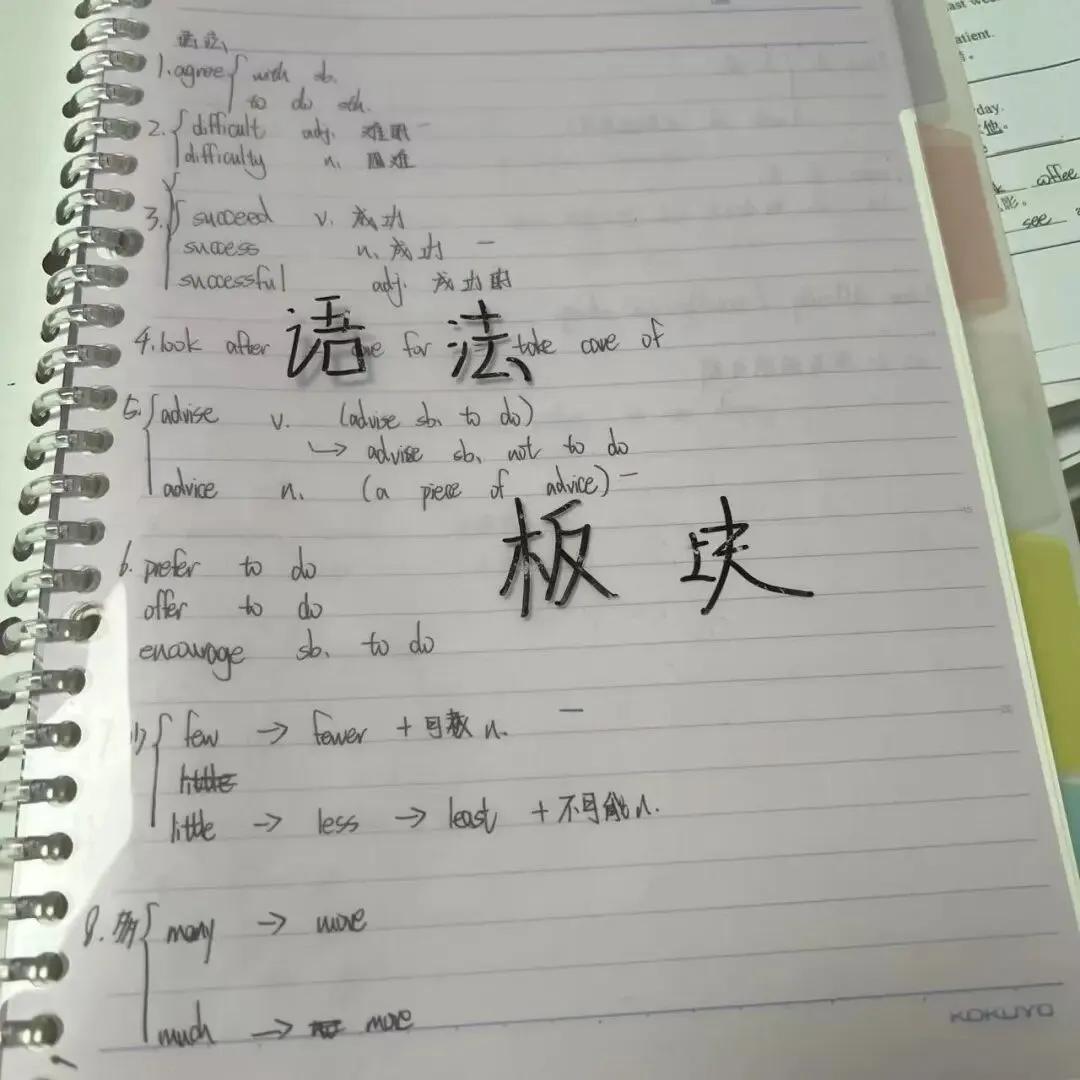 语法
1. agree { with sb.
to do sth.
2. { difficult adj. 难的
difficulty n. 困难
3. { succeed v. 成功
success n. 成功
successful adj. 成功的
4. look after care for take care of
语 法
5. { advise v. (advise sb. to do)
↳ advise sb. not to do
advice n. (a piece of advice)
板 块
6. prefer to do
offer to do
encourage sb. to do
少 { few → fewer + 可数 n.
little
little → less → least + 不可 n.
8. 多 { many → more
much → more
KOKUYO
atient.
day.
他。
coffee
影。
see